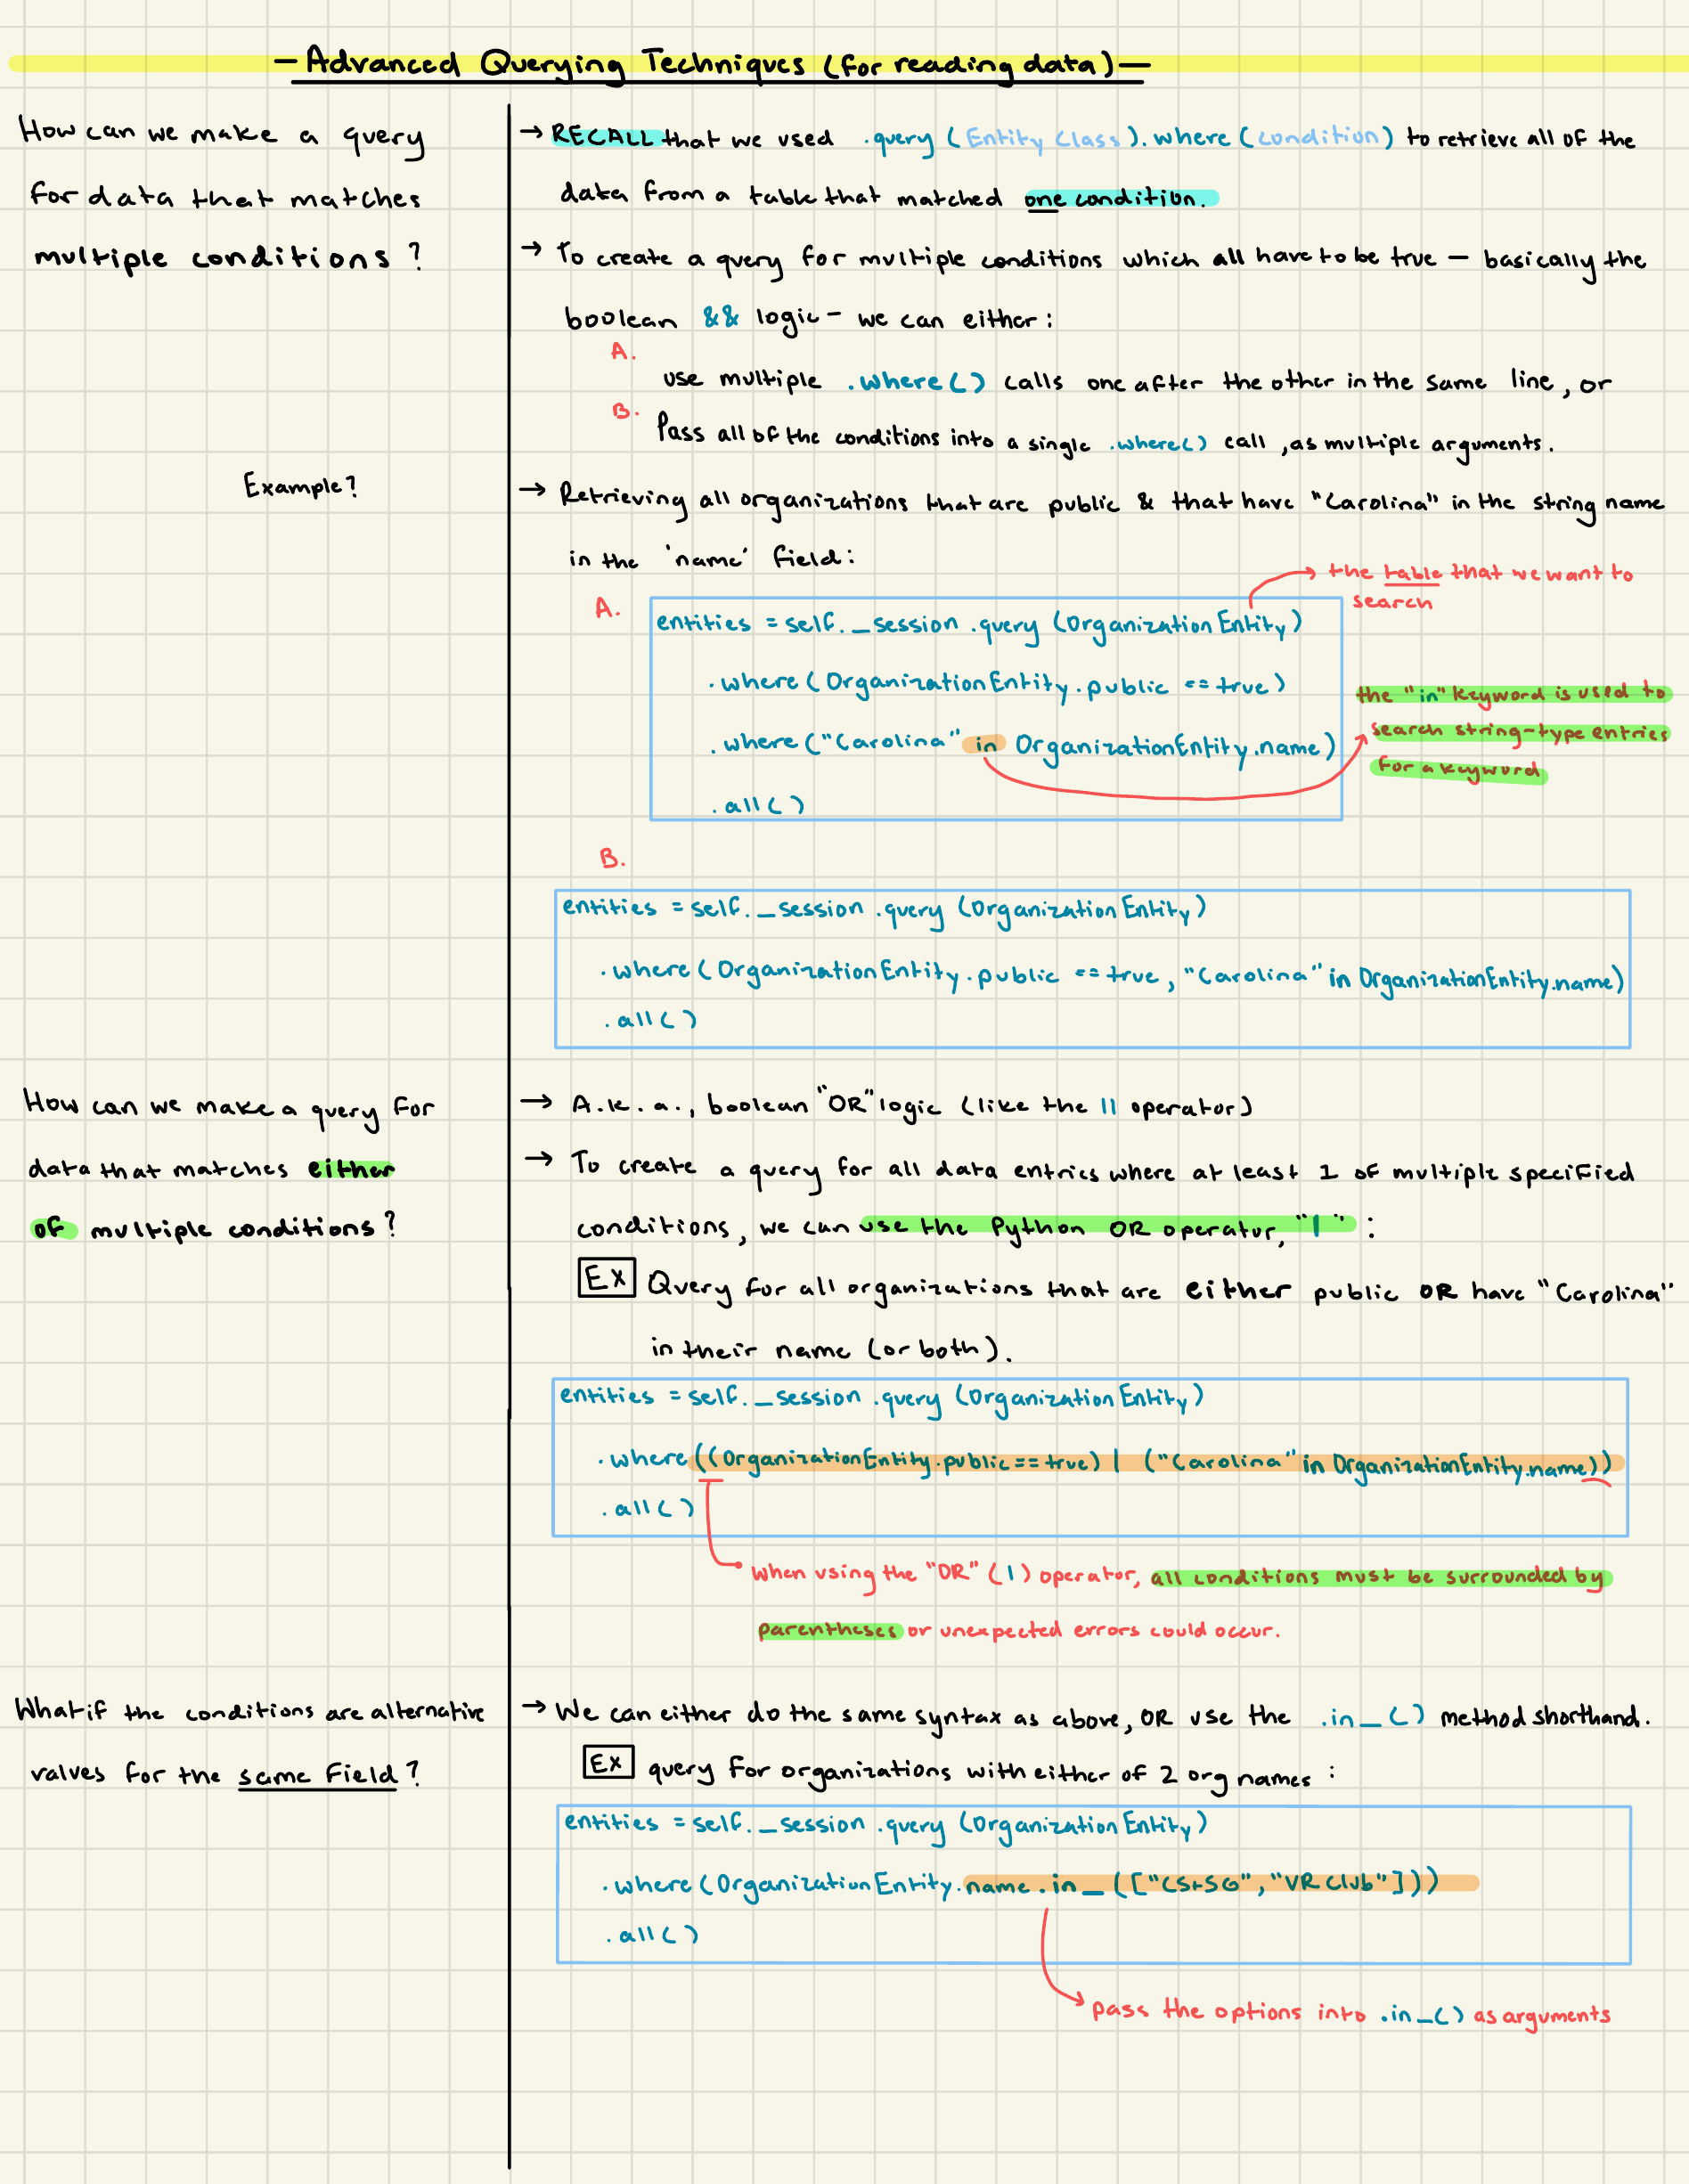 — Advanced Querying Techniques (for reading data) —
How can we make a query
for data that matches
multiple conditions?
→ RECALL that we used .query (Entity Class). where (condition) to retrieve all of the
data from a table that matched one condition.
→ To create a query for multiple conditions which all have to be true — basically the
boolean && logic - we can either:
A.
use multiple .where() calls one after the other in the same line, or
B.
Pass all of the conditions into a single .where() call, as multiple arguments.
Example?
→ Retrieving all organizations that are public & that have "Carolina" in the string name
in the 'name' field:
→ the table that we want to
search
A.
entities = self._session.query (OrganizationEntity)
.where (OrganizationEntity.public == true)
.where ("Carolina" in OrganizationEntity.name)
.all()
the "in" keyword is used to
search string-type entries
for a keyword
B.
entities = self._session.query (OrganizationEntity)
.where (OrganizationEntity.public == true, "Carolina" in OrganizationEntity.name)
.all()
How can we make a query for
data that matches either
of multiple conditions?
→ A.k.a., boolean "OR" logic (like the || operator)
→ To create a query for all data entries where at least 1 of multiple specified
conditions, we can use the Python OR operator, "|" :
EX Query for all organizations that are either public OR have "Carolina"
in their name (or both).
entities = self._session.query (OrganizationEntity)
.where ((OrganizationEntity.public == true) | ("Carolina" in OrganizationEntity.name))
.all()
when using the "OR" (|) operator, all conditions must be surrounded by
parentheses or unexpected errors could occur.
What if the conditions are alternative
values for the same field?
→ We can either do the same syntax as above, OR use the .in_() method shorthand.
EX query for organizations with either of 2 org names :
entities = self._session.query (OrganizationEntity)
.where (OrganizationEntity.name.in_(["CS+SG", "VR Club"]))
.all()
pass the options into .in_() as arguments